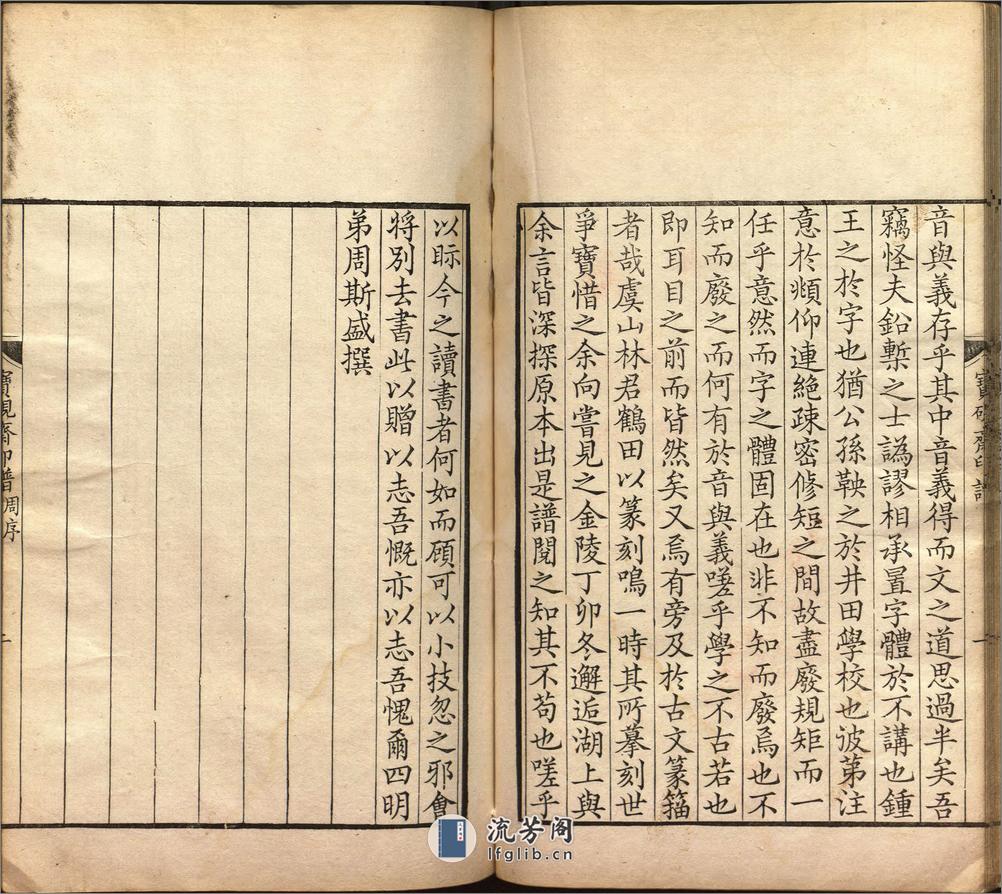 音與義存乎其中音義得而文之道思過半矣吾
竊怪夫鉛槧之士譌謬相承置字體於不講也鍾
王之於字也猶公孫鞅之於井田學校也彼第注
意於頫仰連絕疎密修短之間故盡廢規矩而一
任乎意然而字之體固在也非不知而廢焉也不
知而廢之而何有於音與義嗟乎學之不古若也
即耳目之前而皆然矣又焉有旁及於古文篆籀
者哉虞山林君鶴田以篆刻鳴一時其所摹刻世
爭寶惜之余向嘗見之金陵丁卯冬邂逅湖上與
余言皆深探原本出是譜閱之知其不苟也嗟乎
以眎今之讀書者何如而顧可以小技忽之邪會
將別去書此以贈以志吾慨亦以志吾愧爾四明
弟周斯盛撰
寶硯齋印譜
一
寶硯齋印譜周序
二
流芳阁
lfglib.cn